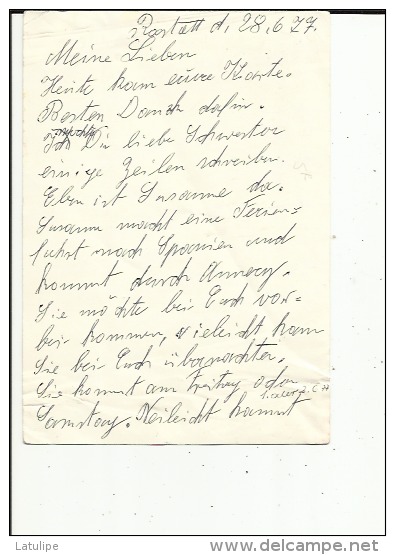 Rastatt d, 28.6 77.
Meine Lieben
Heute kam eure Karte.
Besten Dank dafür.
Ich möchte Dir liebe Schwester
einige Zeilen schreiben.
Eben ist Susanne da.
Susanne macht eine Ferien-
fahrt nach Spanien und
kommt durch Annecy.
Sie möchte bei Euch vor-
bei kommen, vieleicht kann
Sie bei Euch übernachten.
Sie kommt am Freitag oder
Samstag. Vieleicht kommt
Latulipe
www.delcampe.net